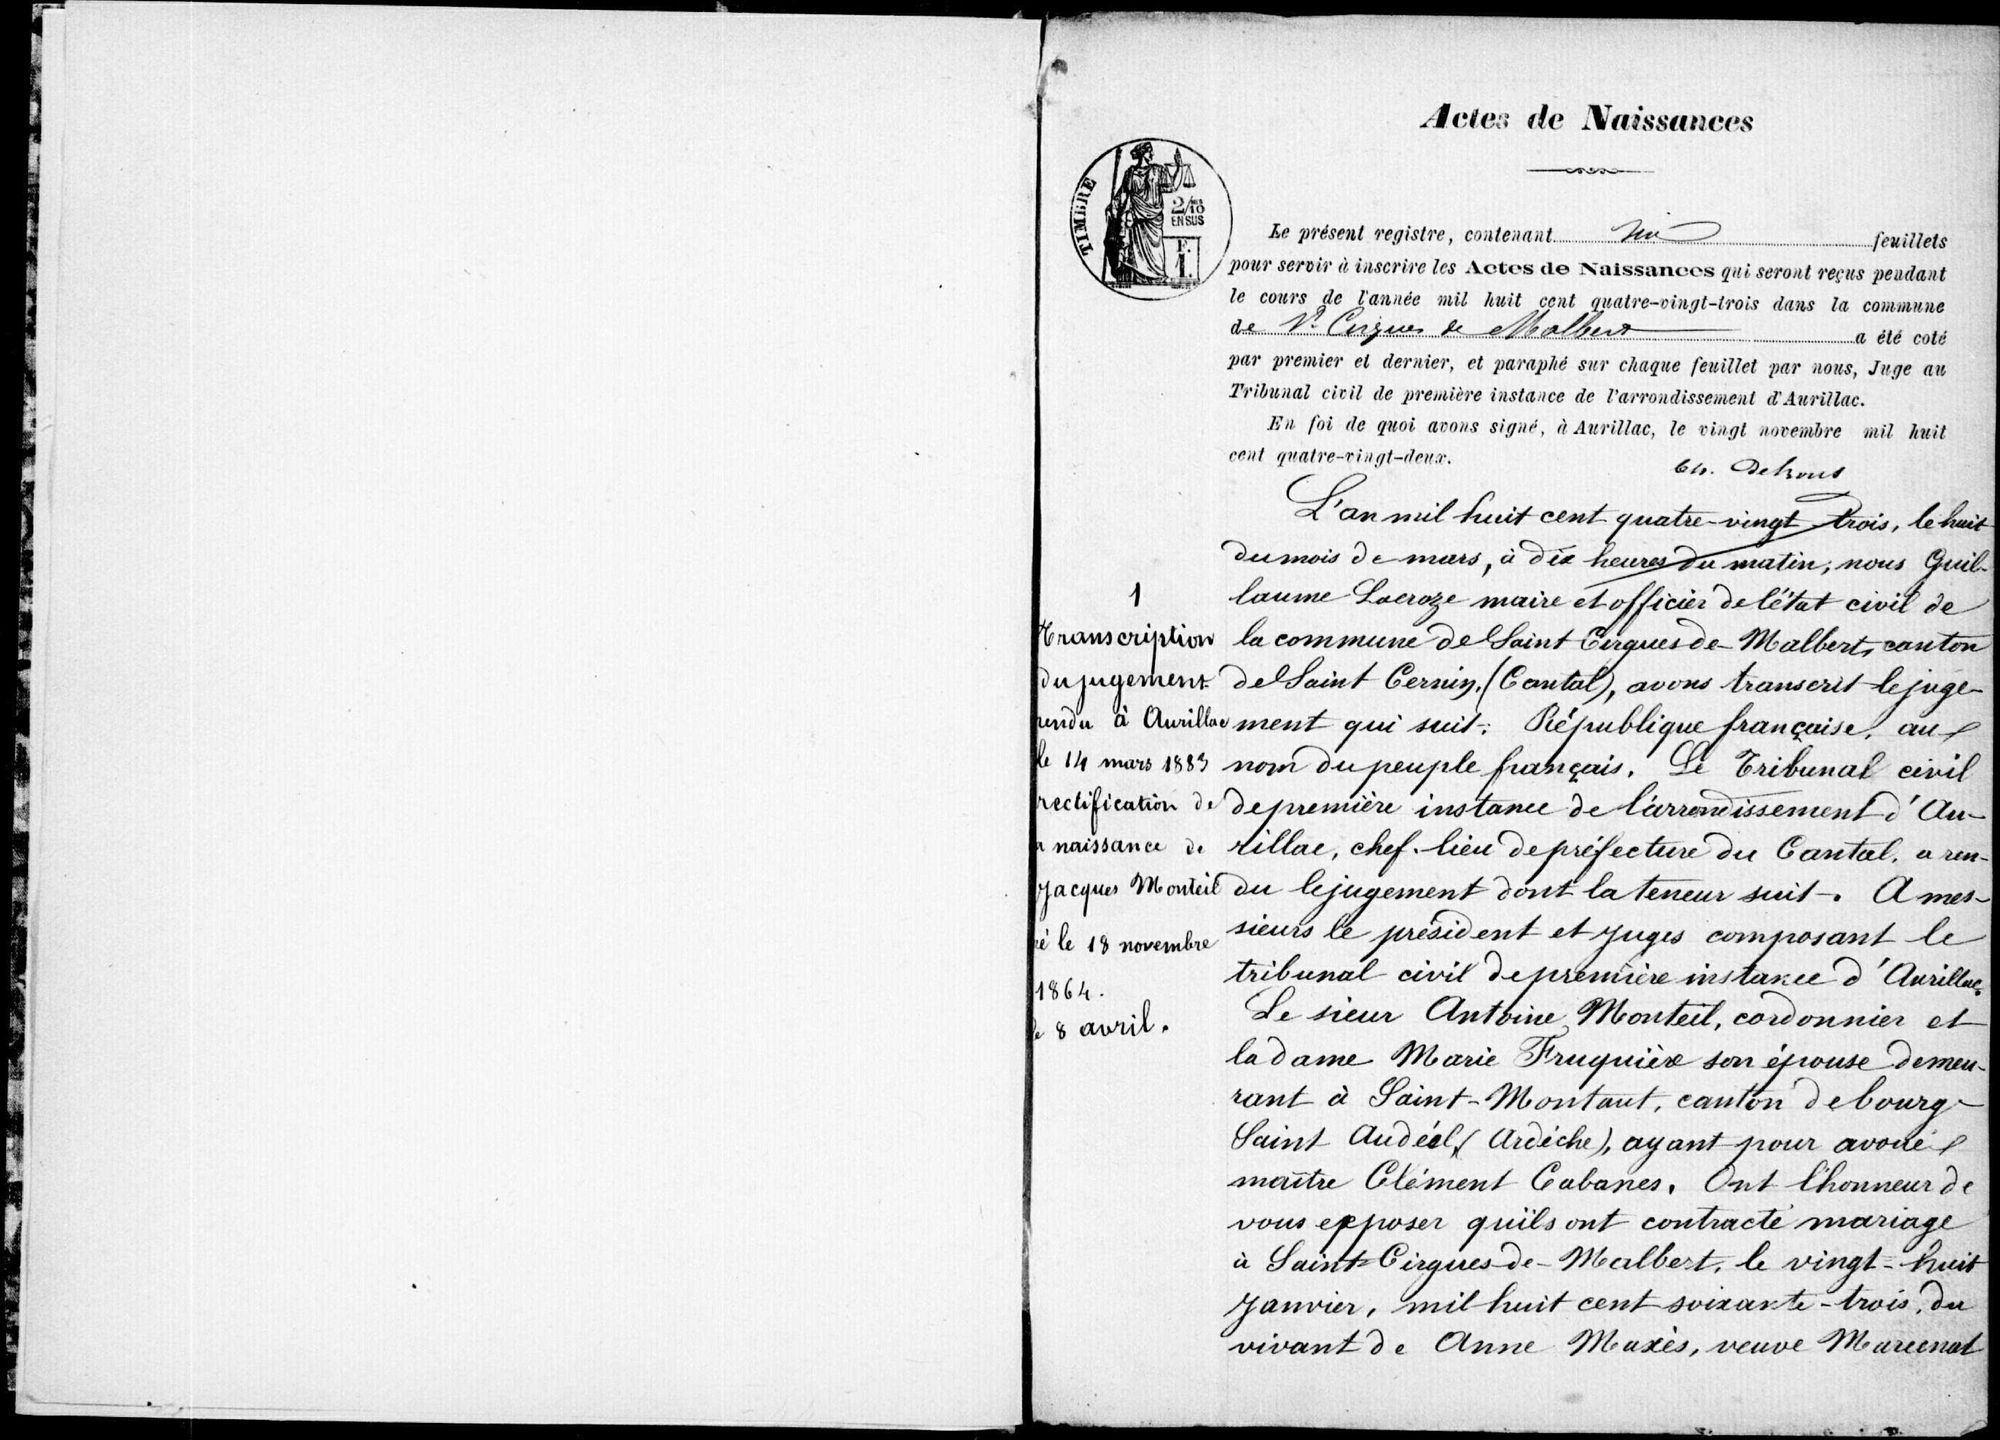 Actes de Naissances
TIMBRE
2/10
EN SUS
F.
1.
Le présent registre, contenant feuillets
pour servir à inscrire les Actes de Naissances qui seront reçus pendant
le cours de l'année mil huit cent quatre-vingt-trois dans la commune
de St Cirgues de Malbert a été coté
par premier et dernier, et paraphé sur chaque feuillet par nous, Juge au
Tribunal civil de première instance de l'arrondissement d'Aurillac.
En foi de quoi avons signé, à Aurillac, le vingt novembre mil huit
cent quatre-vingt-deux.
1
Transcription
du jugement
rendu à Aurillac
le 14 mars 1883
rectification de
naissance de
Jacques Monteil
né le 18 novembre
1864.
le 8 avril.
L'an mil huit cent quatre-vingt trois, le huit
du mois de mars, à dix heures du matin, nous Guil-
laume Lacroze maire et officier de l'état civil de
la commune de Saint Cirgues de Malbert, canton
de Saint Cernin, (Cantal), avons transcrit le juge-
ment qui suit: République française, au
nom du peuple français. Le Tribunal civil
de première instance de l'arrondissement d'Au-
rillac, chef-lieu de préfecture du Cantal, a ren-
du le jugement dont la teneur suit. A mes-
sieurs le président et juges composant le
tribunal civil de première instance d'Aurillac.
Le sieur Antoine Monteil, cordonnier et
la dame Marie Fruquière son épouse demeu-
rant à Saint-Montant, canton de bourg-
Saint Audéol, (Ardèche), ayant pour avoué
maître Clément Cabanes. Ont l'honneur de
vous exposer qu'ils ont contracté mariage
à Saint-Cirgues-de-Malbert, le vingt-huit
janvier, mil huit cent soixante-trois, du
vivant de Anne Maxès, veuve Marcenat